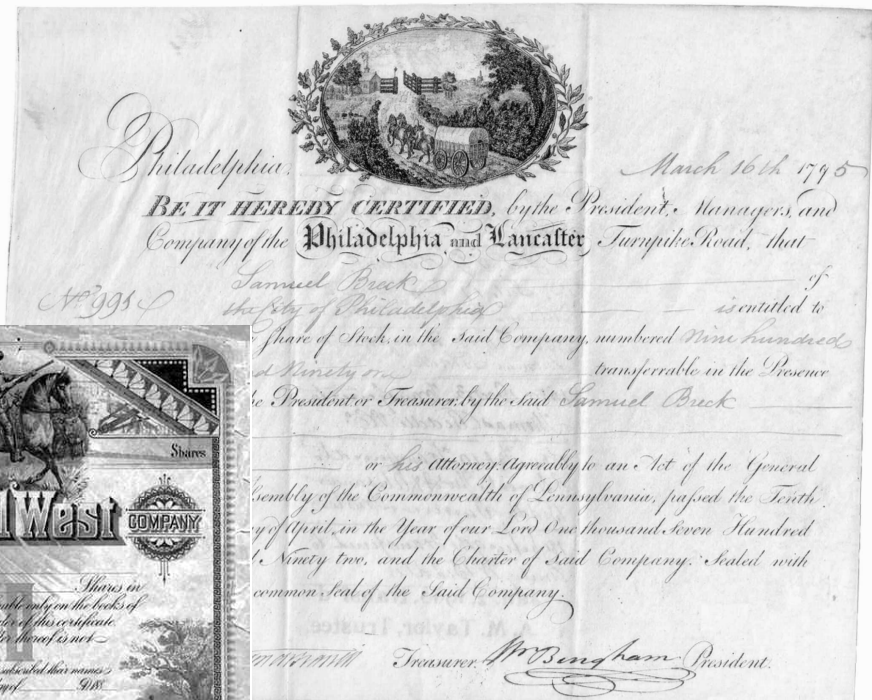 Philadelphia, March 16th 1795
BE IT HEREBY CERTIFIED, by the President, Managers, and
Company of the Philadelphia and Lancaster Turnpike Road, that
Samuel Breck of
No. 991 the City of Philadelphia is entitled to
Share of Stock, in the Said Company, numbered nine hundred
d Ninety one transferrable in the Presence
e President or Treasurer, by the Said Samuel Breck
or his Attorney. Agreably to an Act of the General
ssembly of the Commonwealth of Pennsylvania, passed the Tenth
y of April, in the Year of our Lord One thousand Seven Hundred
d Ninety two, and the Charter of Said Company. Sealed with
common Seal of the Said Company.
M. Taylor, Trustee.
Treasurer. Wm Bingham President.
Shares
d West COMPANY
Shares in
able only on the books of
der of this certificate
thereof is not
subscribed their names
day of A.D. 188